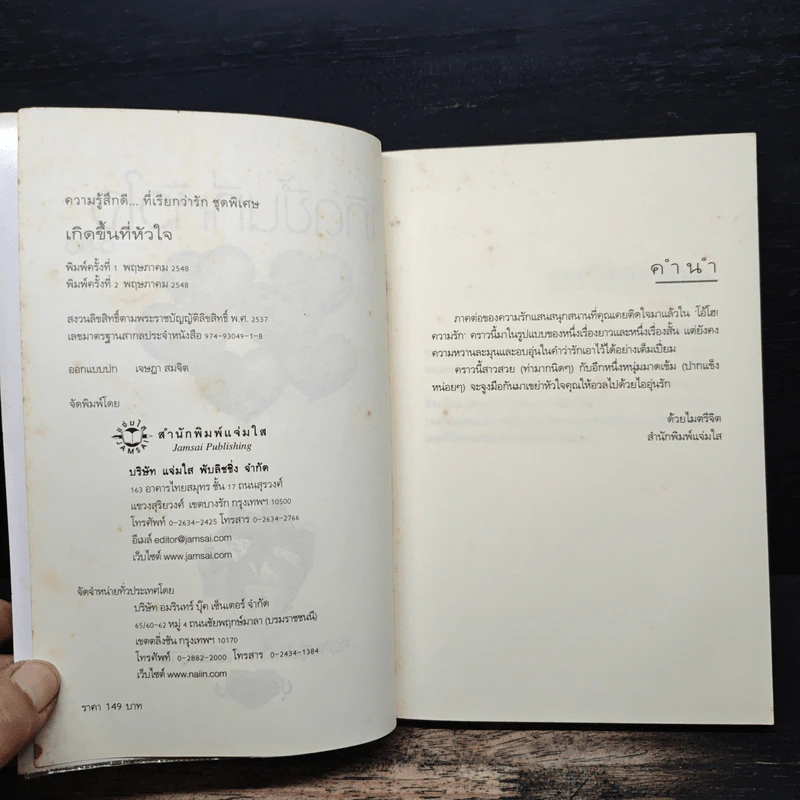 ความรู้สึกดี... ที่เรียกว่ารัก ชุดพิเศษ
เกิดขึ้นที่หัวใจ
พิมพ์ครั้งที่ 1 พฤษภาคม 2548
พิมพ์ครั้งที่ 2 พฤษภาคม 2548
สงวนลิขสิทธิ์ตามพระราชบัญญัติลิขสิทธิ์ พ.ศ. 2537
เลขมาตรฐานสากลประจำหนังสือ 974-93049-1-8
ออกแบบปก เจษฎา สมจิต
จัดพิมพ์โดย
แจ่มใส
JAMSAI
สำนักพิมพ์แจ่มใส
Jamsai Publishing
บริษัท แจ่มใส พับลิชชิ่ง จำกัด
163 อาคารไทยสมุทร ชั้น 17 ถนนสุรวงศ์
แขวงสุริยวงศ์ เขตบางรัก กรุงเทพฯ 10500
โทรศัพท์ 0-2634-2425 โทรสาร 0-2634-2766
อีเมล์ editor@jamsai.com
เว็บไซต์ www.jamsai.com
จัดจำหน่ายทั่วประเทศโดย
บริษัท อมรินทร์ บุ๊ค เซ็นเตอร์ จำกัด
65/60-62 หมู่ 4 ถนนชัยพฤกษ์มาลา (บรมราชชนนี)
เขตตลิ่งชัน กรุงเทพฯ 10170
โทรศัพท์ 0-2882-2000 โทรสาร 0-2434-1384
เว็บไซต์ www.naiin.com
ราคา 149 บาท
คำนำ
ภาคต่อของความรักแสนสนุกสนานที่คุณเคยติดใจมาแล้วใน 'โอ้โฮ!
ความรัก' คราวนี้มาในรูปแบบของหนึ่งเรื่องยาวและหนึ่งเรื่องสั้น แต่ยังคง
ความหวานละมุนและอบอุ่นในคำว่ารักเอาไว้ได้อย่างเต็มเปี่ยม
คราวนี้สาวสวย (ท่ามากนิดๆ) กับอีกหนึ่งหนุ่มมาดเข้ม (ปากแข็ง
หน่อยๆ) จะจูงมือกันมาเขย่าหัวใจคุณให้อวลไปด้วยไออุ่นรัก
ด้วยไมตรีจิต
สำนักพิมพ์แจ่มใส